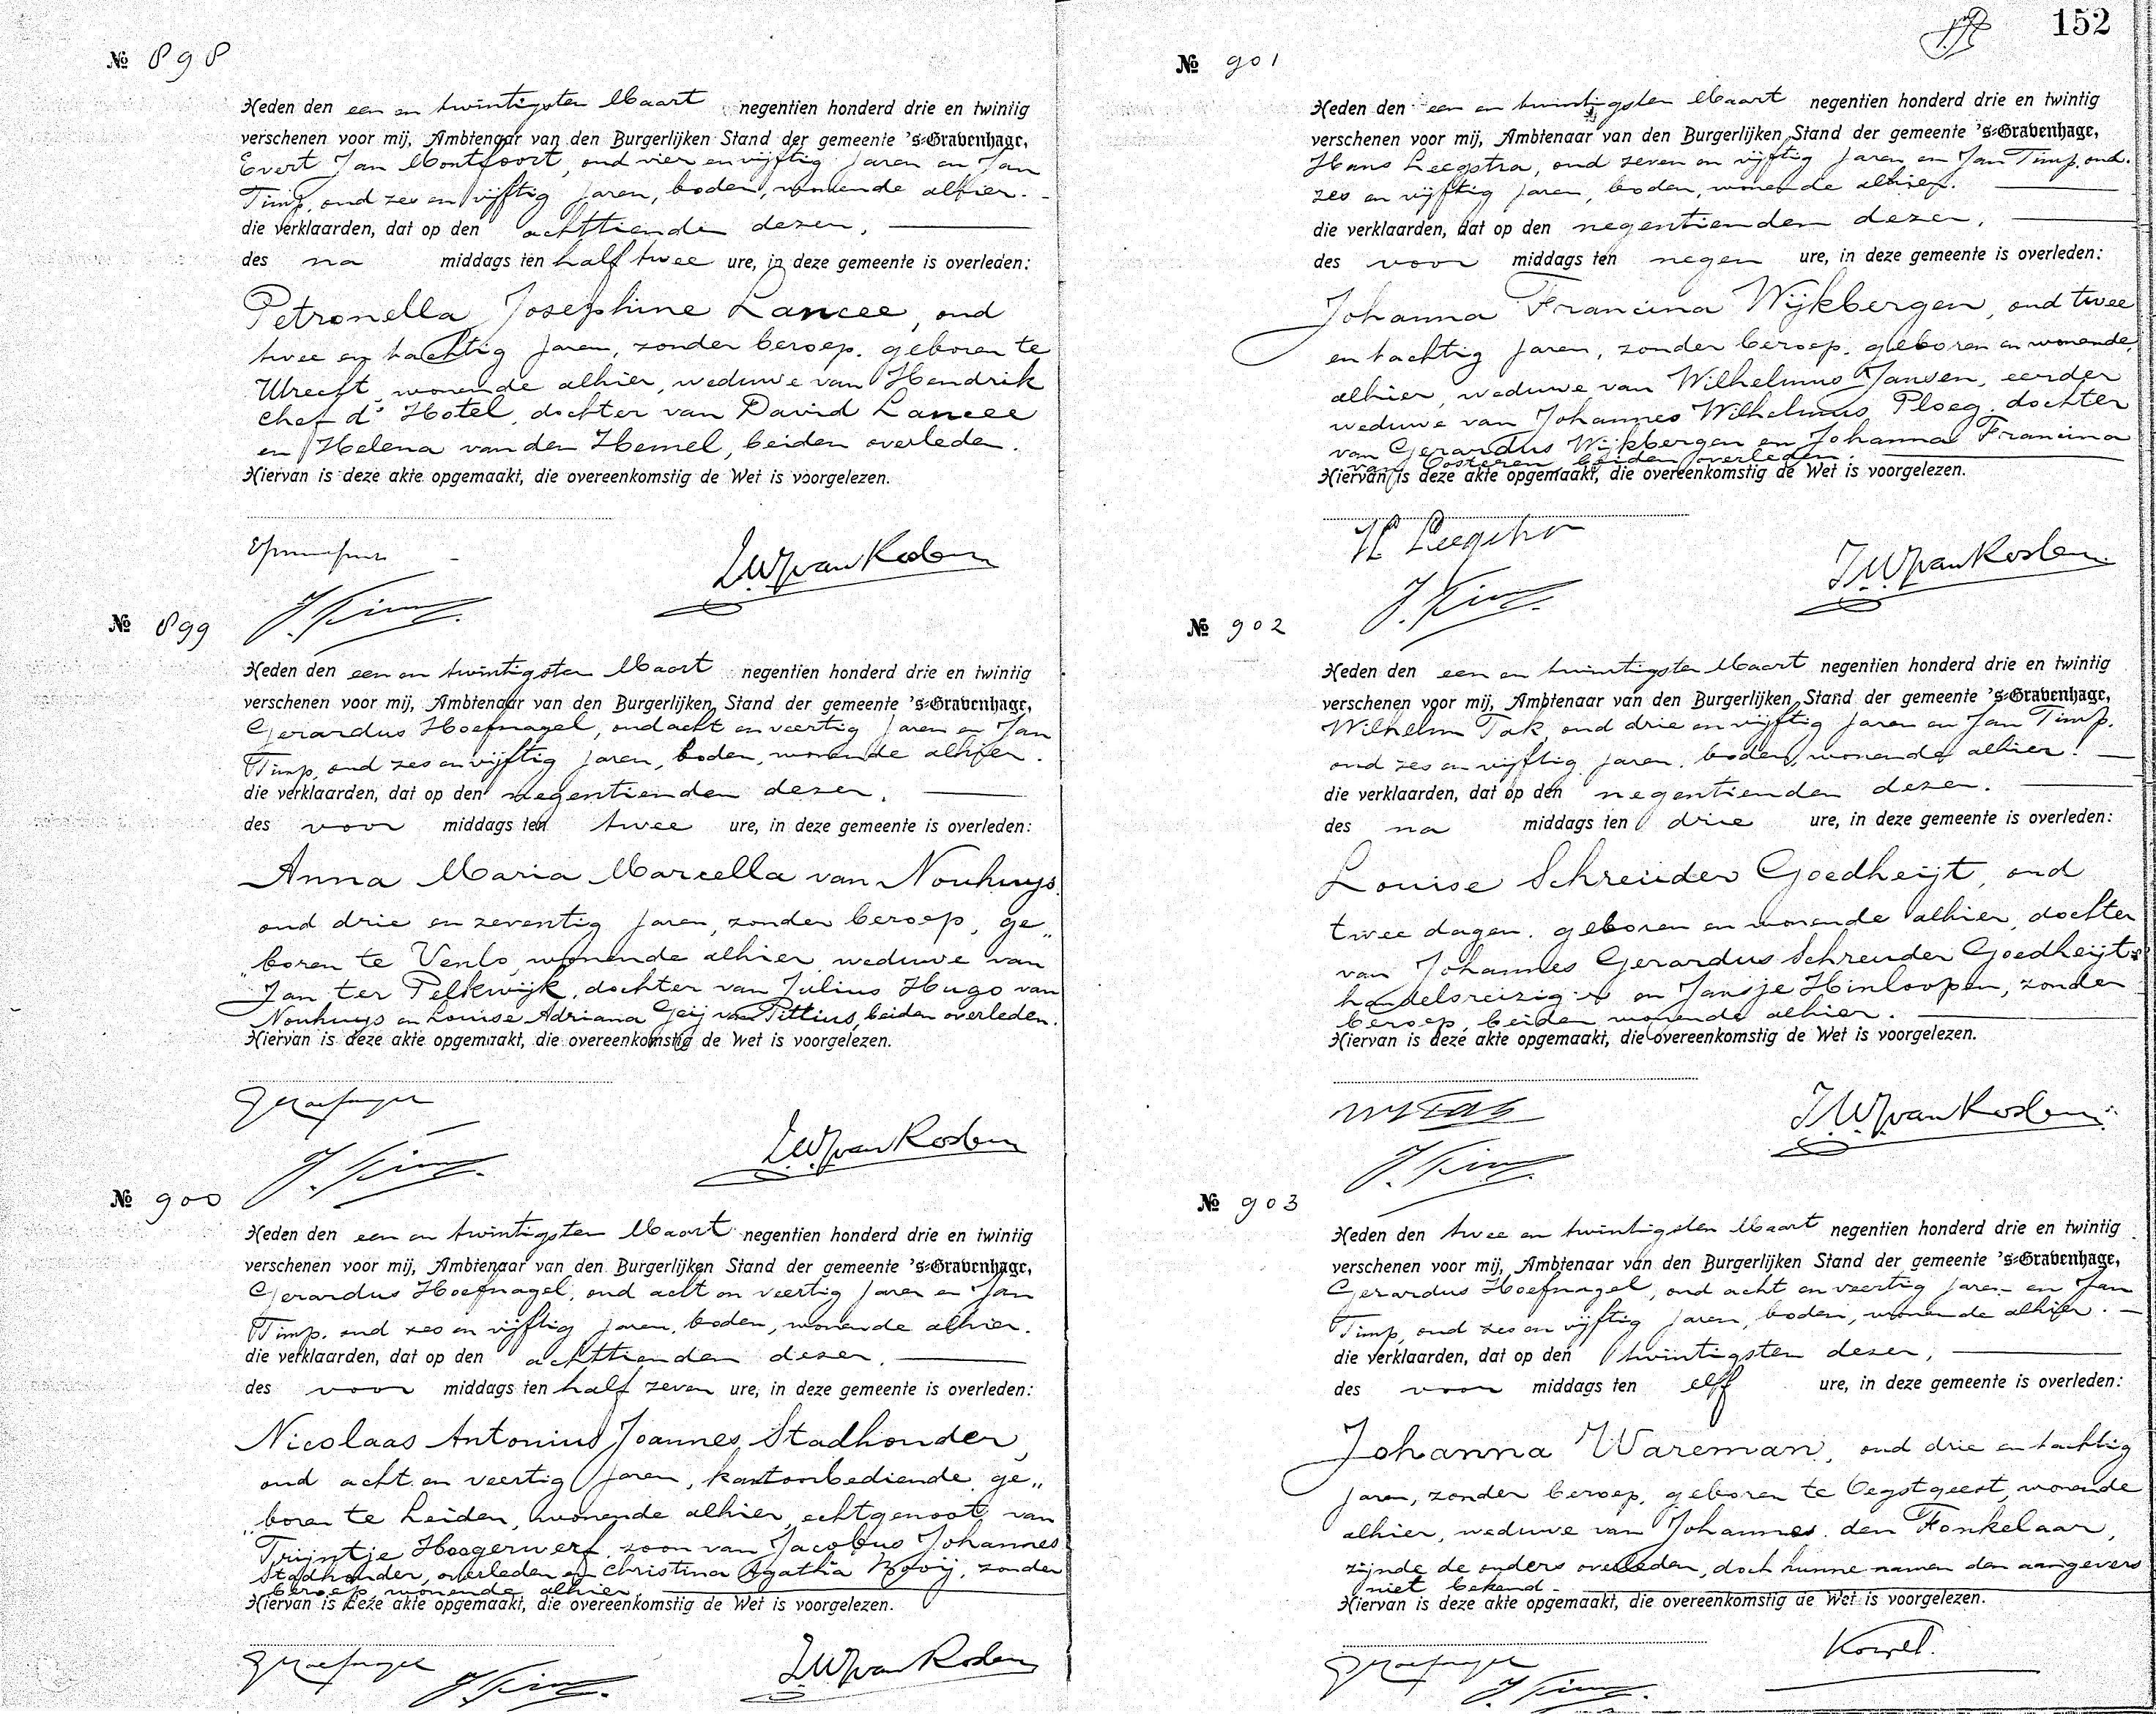 № 898
Heden den een en twintigsten Maart negentien honderd drie en twintig
verschenen voor mij, Ambtenaar van den Burgerlijken Stand der gemeente 's-Gravenhage,
Evert Jan Montfoort, oud vier en vijftig jaren en Jan
Timp, oud zes en vijftig jaren, boden, wonende alhier.
die verklaarden, dat op den achttienden dezer,
des na middags ten half twee ure, in deze gemeente is overleden:
Petronella Josephine Lancee, oud
twee en tachtig jaren, zonder beroep, geboren te
Utrecht, wonende alhier, weduwe van Hendrik
Chef d'Hotel, dochter van David Lancee
en Helena van den Hemel, beiden overleden.
Hiervan is deze akte opgemaakt, die overeenkomstig de Wet is voorgelezen.
J. Timp
№ 899
Heden den een en twintigsten Maart negentien honderd drie en twintig
verschenen voor mij, Ambtenaar van den Burgerlijken Stand der gemeente 's-Gravenhage,
Gerardus Hoefnagel, oud acht en veertig jaren en Jan
Timp, oud zes en vijftig jaren, boden, wonende alhier.
die verklaarden, dat op den negentienden dezer,
des voor middags ten twee ure, in deze gemeente is overleden:
Anna Maria Marcella van Nouhuys,
oud drie en zeventig jaren, zonder beroep, ge„
„boren te Venlo, wonende alhier, weduwe van
Jan ter Pelkwijk, dochter van Julius Hugo van
Nouhuys en Louise Adriana Geij van Pittius, beiden overleden.
Hiervan is deze akte opgemaakt, die overeenkomstig de Wet is voorgelezen.
G Hoefnagel
J. Timp
№ 900
Heden den een en twintigsten Maart negentien honderd drie en twintig
verschenen voor mij, Ambtenaar van den Burgerlijken Stand der gemeente 's-Gravenhage,
Gerardus Hoefnagel, oud acht en veertig jaren en Jan
Timp, oud zes en vijftig jaren, boden, wonende alhier.
die verklaarden, dat op den achttienden dezer,
des voor middags ten half zeven ure, in deze gemeente is overleden:
Nicolaas Antonius Joannes Stadhouder,
oud acht en veertig jaren, kantoorbediende, ge„
„boren te Leiden, wonende alhier, echtgenoot van
Trijntje Hoogerwerf, zoon van Jacobus Johannes
Stadhouder, overleden en Christina Agatha Rooij, zonder
beroep, wonende alhier.
Hiervan is deze akte opgemaakt, die overeenkomstig de Wet is voorgelezen.
G Hoefnagel J. Timp
152
№ 901
Heden den een en twintigsten Maart negentien honderd drie en twintig
verschenen voor mij, Ambtenaar van den Burgerlijken Stand der gemeente 's-Gravenhage,
Hans Leegstra, oud zeven en vijftig jaren en Jan Timp, oud
zes en vijftig jaren, boden, wonende alhier.
die verklaarden, dat op den negentienden dezer,
des voor middags ten negen ure, in deze gemeente is overleden:
Johanna Francina Wijkbergen, oud twee
en tachtig jaren, zonder beroep, geboren en wonende
alhier, weduwe van Wilhelmus Jansen, eerder
weduwe van Johannes Wilhelmus Ploeg, dochter
van Gerardus Wijkbergen en Johanna Francina
van Oosteren, beiden overleden.
Hiervan is deze akte opgemaakt, die overeenkomstig de Wet is voorgelezen.
H Leegstra
J. Timp
№ 902
Heden den een en twintigsten Maart negentien honderd drie en twintig
verschenen voor mij, Ambtenaar van den Burgerlijken Stand der gemeente 's-Gravenhage,
Wilhelm Tak, oud drie en vijftig jaren en Jan Timp,
oud zes en vijftig jaren, boden, wonende alhier.
die verklaarden, dat op den negentienden dezer.
des na middags ten drie ure, in deze gemeente is overleden:
Louise Schreuder Goedheijt, oud
twee dagen, geboren en wonende alhier, dochter
van Johannes Gerardus Schreuder Goedheijt,
handelsreiziger en Jansje Hinloopen, zonder
beroep, beiden wonende alhier.
Hiervan is deze akte opgemaakt, die overeenkomstig de Wet is voorgelezen.
W Tak
J. Timp
№ 903
Heden den twee en twintigsten Maart negentien honderd drie en twintig
verschenen voor mij, Ambtenaar van den Burgerlijken Stand der gemeente 's-Gravenhage,
Gerardus Hoefnagel, oud acht en veertig jaren en Jan
Timp, oud zes en vijftig jaren, boden, wonende alhier.
die verklaarden, dat op den twintigsten dezer,
des voor middags ten elf ure, in deze gemeente is overleden:
Johanna Wareman, oud drie en tachtig
jaren, zonder beroep, geboren te Oegstgeest, wonende
alhier, weduwe van Johannes den Fonkelaar,
zijnde de ouders overleden, doch hunne namen den aangevers
niet bekend.
Hiervan is deze akte opgemaakt, die overeenkomstig de Wet is voorgelezen.
G Hoefnagel
J. Timp